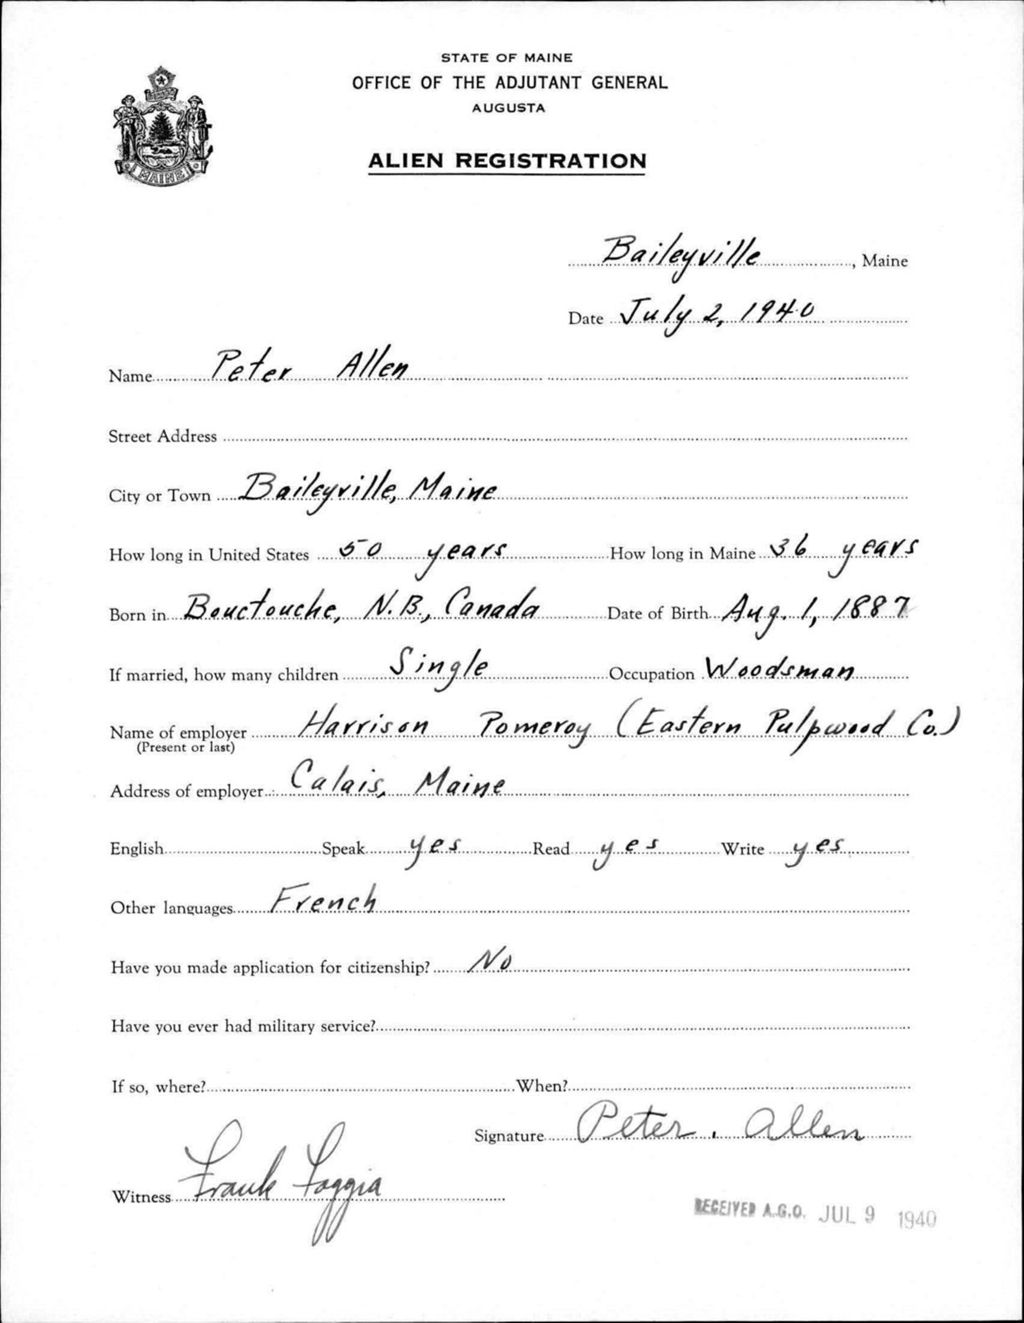 STATE OF MAINE
OFFICE OF THE ADJUTANT GENERAL
AUGUSTA
ALIEN REGISTRATION
MAINE
Baileyville, Maine
Date July 2, 1940
Name Peter Allen
Street Address
City or Town Baileyville, Maine
How long in United States 50 years How long in Maine 36 years
Born in Bouctouche, N.B., Canada Date of Birth Aug. 1, 1887
If married, how many children Single Occupation Woodsman
Name of employer Harrison Pomeroy (Eastern Pulpwood Co.)
(Present or last)
Address of employer Calais, Maine
English Speak yes Read yes Write yes
Other languages French
Have you made application for citizenship? No
Have you ever had military service?
If so, where? When?
Signature Peter. Allen
Witness Frank Foggia
RECEIVED A.G.O. JUL 9 1940